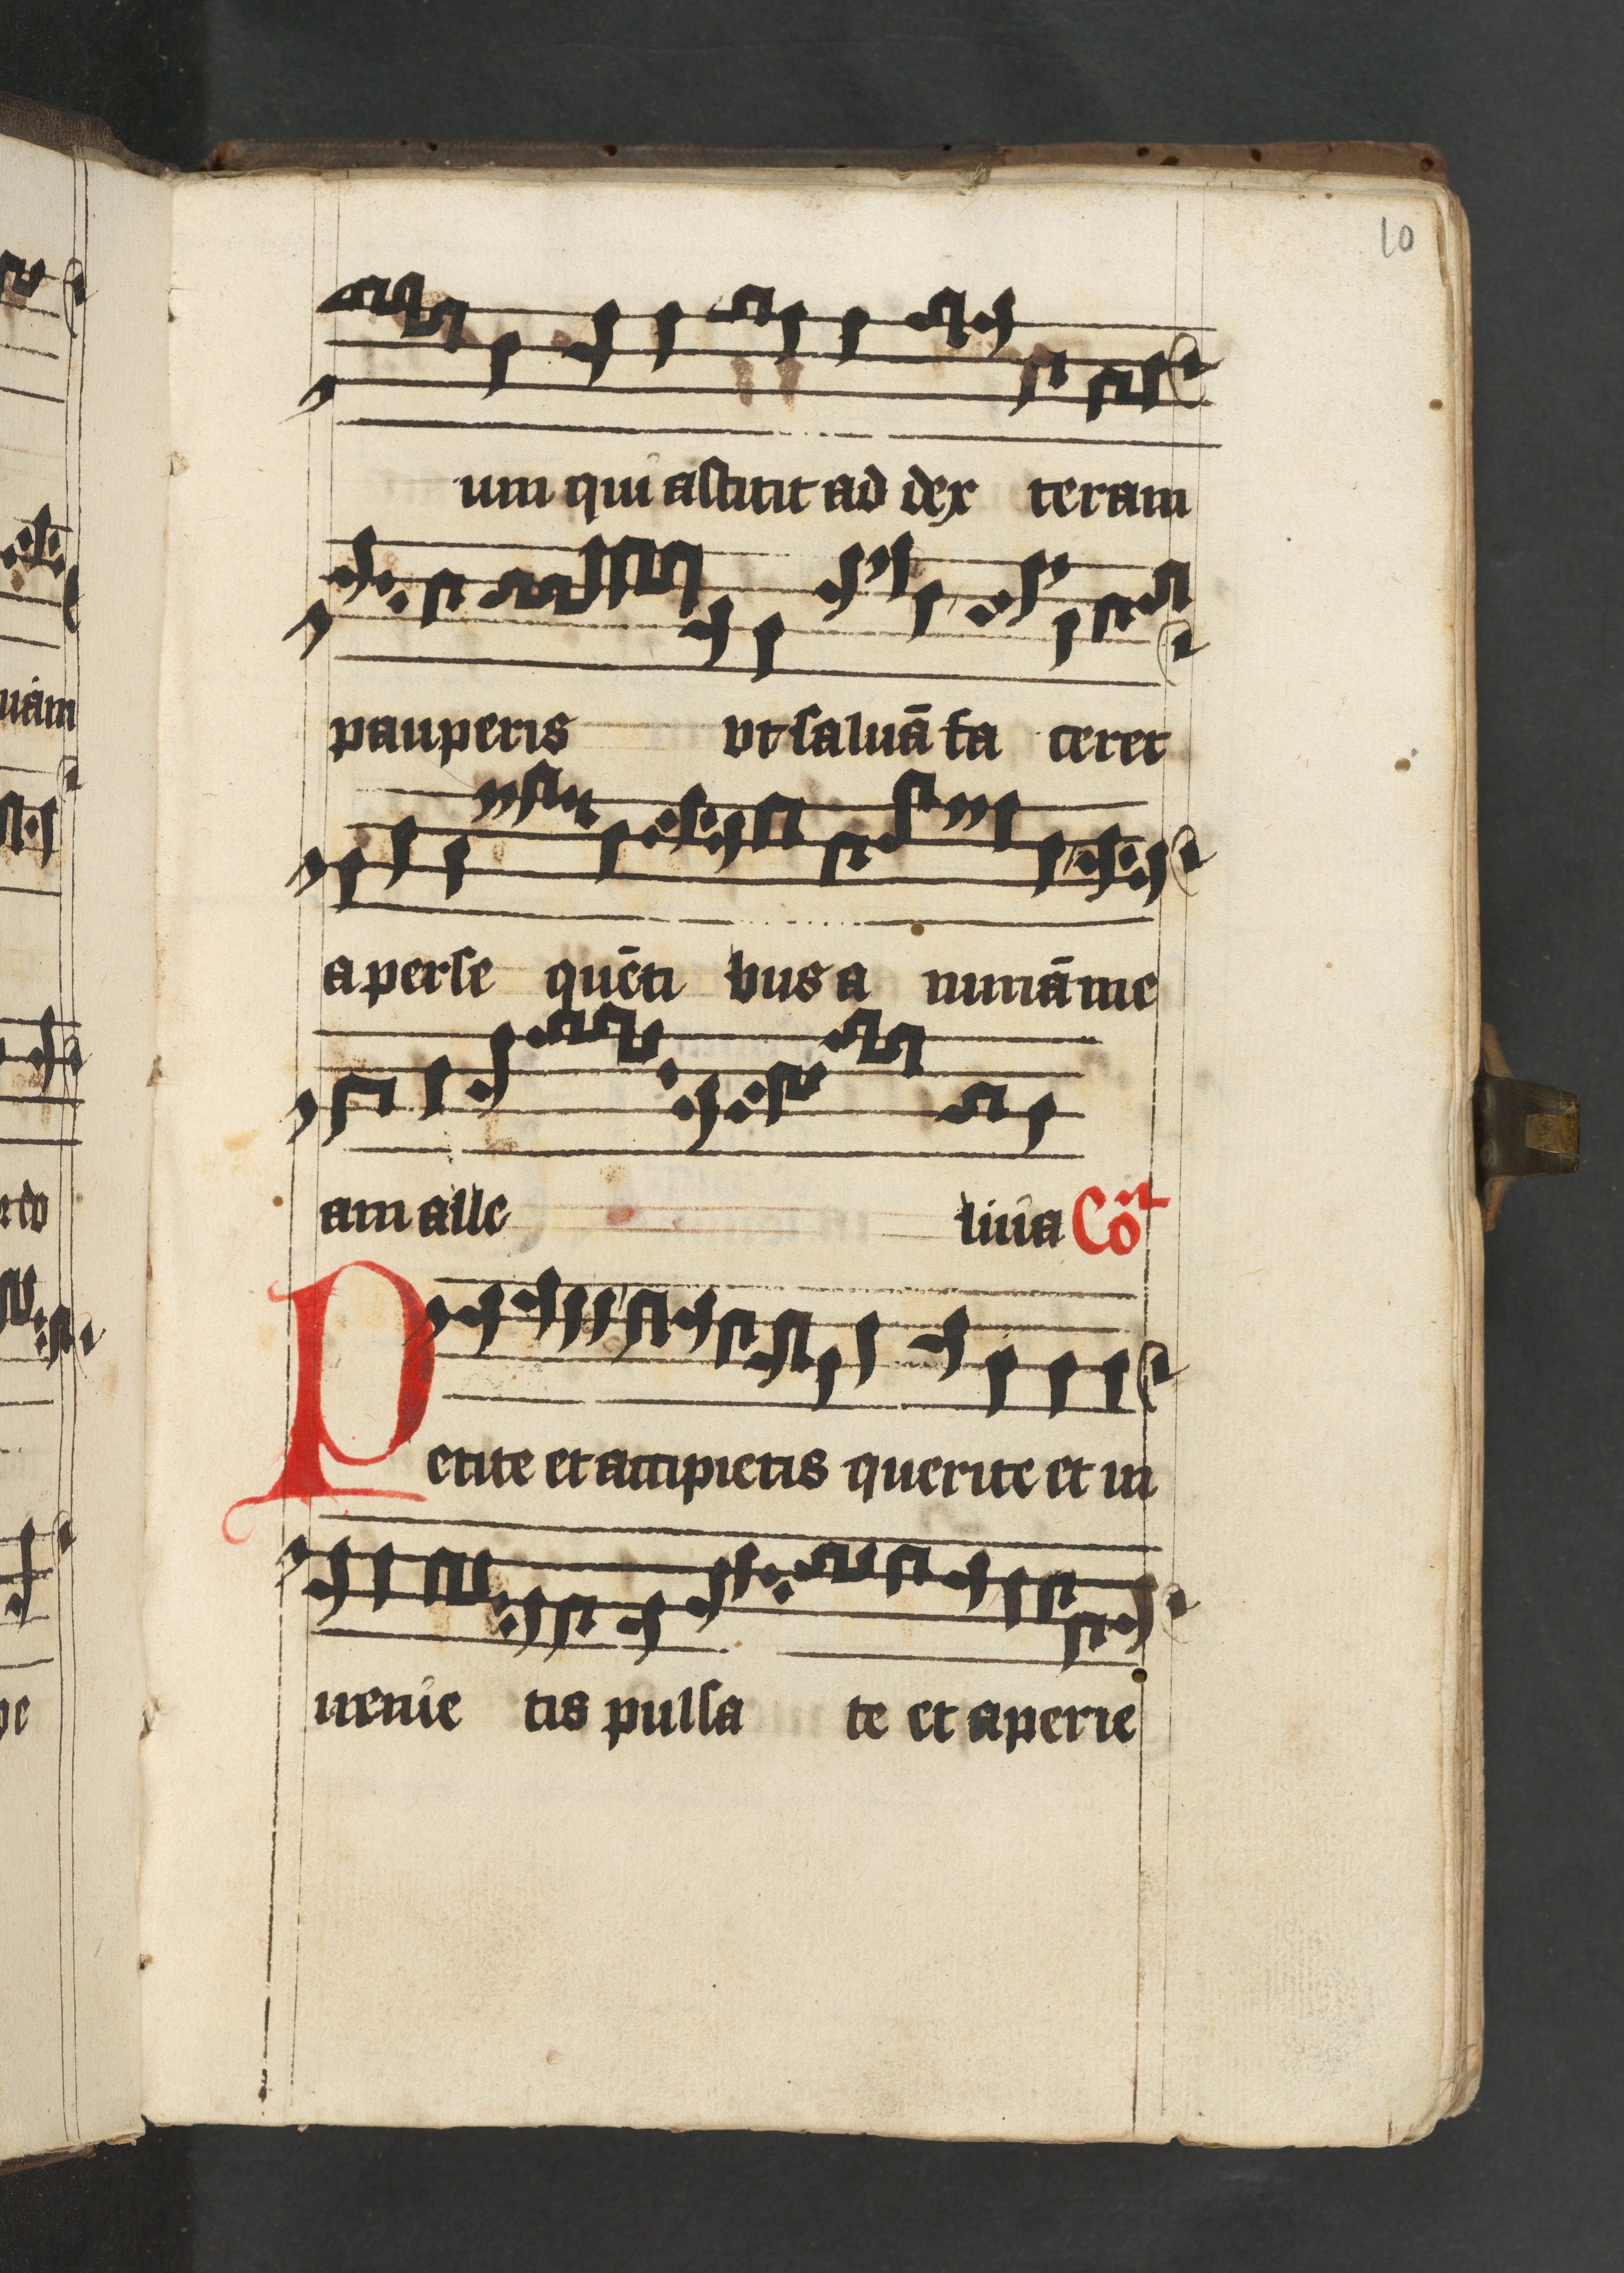 10
um qui astitit ad dex teram
pauperis vt saluā fa ceret
a perse quēti bus a nimā me
am alle luia Cōō
Petite et accipietis querite et in
uenie tis pulsa te et aperie